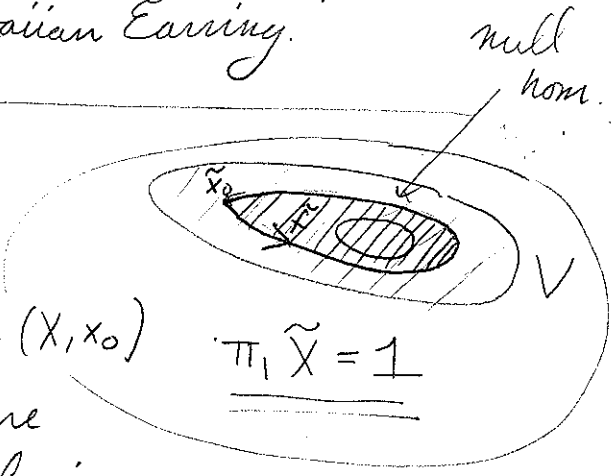 aiian Earring.
null
hom.
x̃₀
V
(X, x₀)
π₁ X̃ = 1